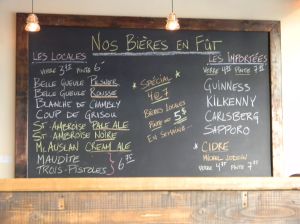 Nos Bières en Fût
Les Locales
Verre 3.75 Pinte 6.-
Belle Gueule Pilsner
Belle Gueule Rousse
Blanche de Chambly
Coup de Grisou
St-Ambroise Pale Ale
St-Ambroise Noire
McAuslan Cream Ale
Maudite
Trois-Pistoles
6.75
* Spécial *
4 @ 7
Bières Locales
Pinte = 5$
En Semaine...
Les Importées
Verre Pinte
Guinness
Kilkenny
Carlsberg
Sapporo
* Cidre
Michel Jodoin
Verre Pinte